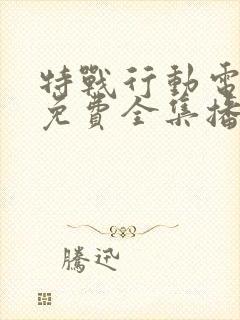 特戰行動電
免費全集播
騰迅